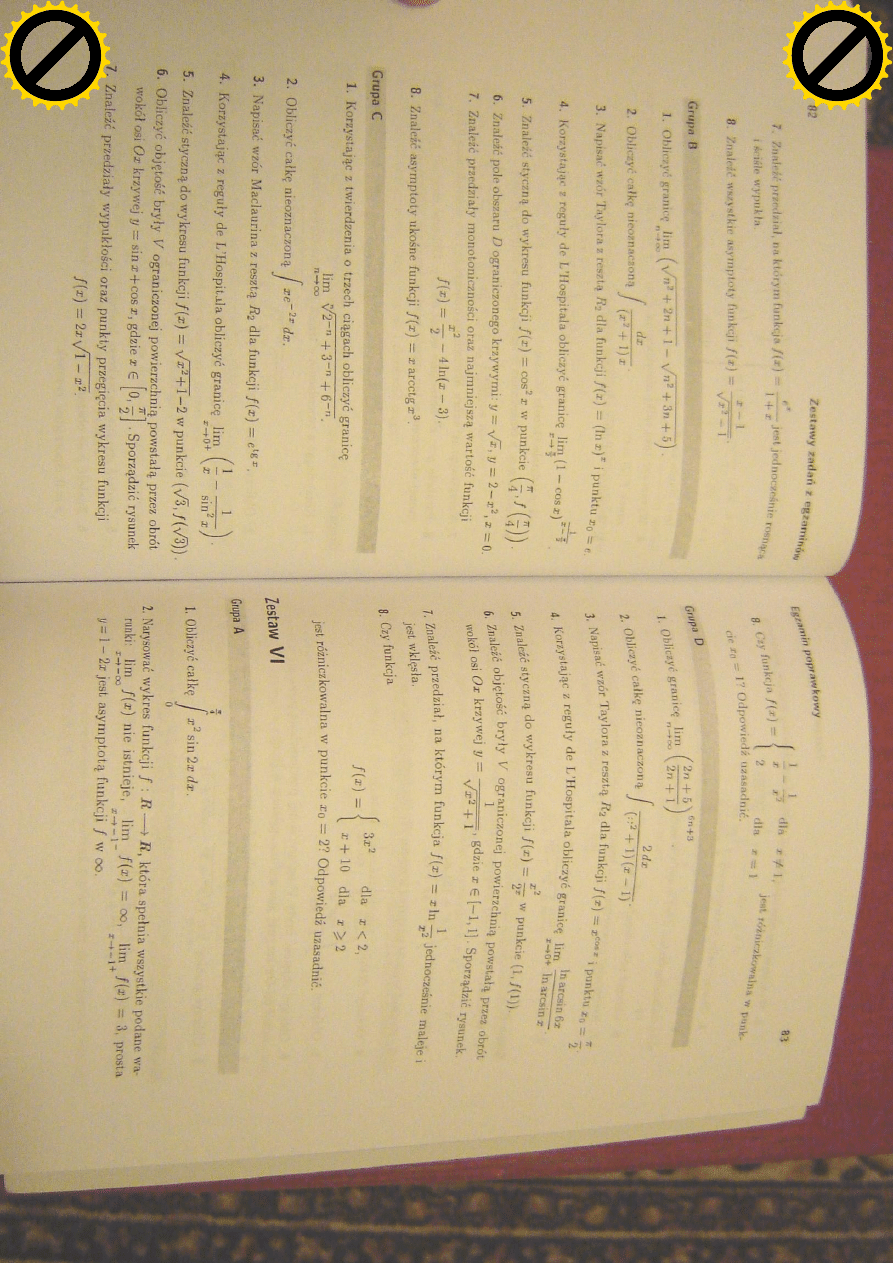 82
Zestawy zadań z egzaminów
7. Znaleźć przedział, na którym funkcja f(x) = e^x / (1 + x) jest jednocześnie rosnąca
i ściśle wypukła.
8. Znaleźć wszystkie asymptoty funkcji f(x) = (x − 1) / √(x² − 1).
Grupa B
1. Obliczyć granicę lim_{n→∞} (√(n² + 2n + 1) − √(n² + 3n + 5)).
2. Obliczyć całkę nieoznaczoną ∫ dx / ((x² + 1) x).
3. Napisać wzór Taylora z resztą R₂ dla funkcji f(x) = (ln x)^x i punktu x₀ = e.
4. Korzystając z reguły de L'Hospitala obliczyć granicę lim (1 − cos x)
5. Znaleźć styczną do wykresu funkcji f(x) = cos² x w punkcie (π/4, f(π/4)).
6. Znaleźć pole obszaru D ograniczonego krzywymi: y = √x, y = 2 − x², x = 0.
7. Znaleźć przedziały monotoniczności oraz najmniejszą wartość funkcji
f(x) = x²/2 − 4 ln(x − 3).
8. Znaleźć asymptoty ukośne funkcji f(x) = x arcctg x³.
Grupa C
1. Korzystając z twierdzenia o trzech ciągach obliczyć granicę
lim_{n→∞} ⁿ√(2⁻ⁿ + 3⁻ⁿ + 6⁻ⁿ).
2. Obliczyć całkę nieoznaczoną ∫ xe^{−2x} dx.
3. Napisać wzór Maclaurina z resztą R₂ dla funkcji f(x) = e^{tg x}.
4. Korzystając z reguły de L'Hospitala obliczyć granicę lim_{x→0+} (1/x − 1/sin² x).
5. Znaleźć styczną do wykresu funkcji f(x) = √(x²+1) − 2 w punkcie (√3, f(√3)).
6. Obliczyć objętość bryły V ograniczonej powierzchnią powstałą przez obrót
wokół osi Ox krzywej y = sin x + cos x, gdzie x ∈ [0, π/2]. Sporządzić rysunek
7. Znaleźć przedziały wypukłości oraz punkty przegięcia wykresu funkcji
f(x) = 2x √(1 − x².
Egzamin poprawkowy
83
8. Czy funkcja f(x) = { 1/x − 1/x² dla x ≠ 1, 2 dla x = 1 jest różniczkowalna w punk-
cie x₀ = 1? Odpowiedź uzasadnić.
Grupa D
1. Obliczyć granicę lim_{n→∞} ((2n + 5)/(2n + 1))^{6n+3}.
2. Obliczyć całkę nieoznaczoną ∫ 2 dx / ((x² + 1)(x − 1)).
3. Napisać wzór Taylora z resztą R₂ dla funkcji f(x) = x^{cos x} i punktu x₀ = π/2
4. Korzystając z reguły de L'Hospitala obliczyć granicę lim_{x→0+} ln arcsin 6x / ln arcsin x.
5. Znaleźć styczną do wykresu funkcji f(x) = x²/2^x w punkcie (1, f(1)).
6. Znaleźć objętość bryły V ograniczonej powierzchnią powstałą przez obrót
wokół osi Ox krzywej y = 1/√(x² + 1), gdzie x ∈ [−1, 1]. Sporządzić rysunek.
7. Znaleźć przedział, na którym funkcja f(x) = x ln 1/x² jednocześnie maleje i
jest wklęsła.
8. Czy funkcja
f(x) = { 3x² dla x < 2, x + 10 dla x ⩾ 2
jest różniczkowalna w punkcie x₀ = 2? Odpowiedź uzasadnić.
Zestaw VI
Grupa A
1. Obliczyć całkę ∫₀^{π/4} x² sin 2x dx.
2. Narysować wykres funkcji f : R ⟶ R, która spełnia wszystkie podane wa-
runki: lim_{x→−∞} f(x) nie istnieje, lim_{x→−1−} f(x) = ∞, lim_{x→−1+} f(x) = 3, prosta
y = 1 − 2x jest asymptotą funkcji f w ∞.